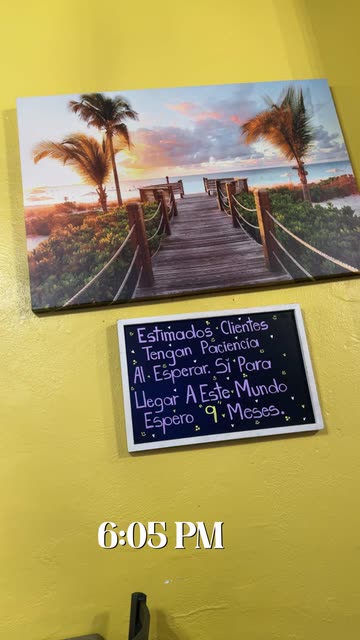 Estimados Clientes
Tengan Paciencia
Al Esperar. Si Para
Llegar A Este Mundo
Espero 9 Meses.
6:05 PM